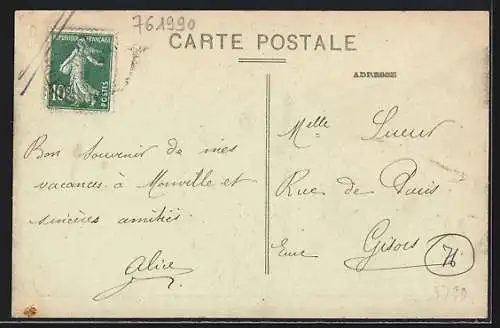 761990
CARTE POSTALE
ADRESSE
REPUBLIQUE FRANÇAISE
10c
POSTES
Bon souvenir de mes
vacances à Monville et
sincères amitiés
Alice
Melle Lueur
Rue de Paris
Gisors
Eure
76